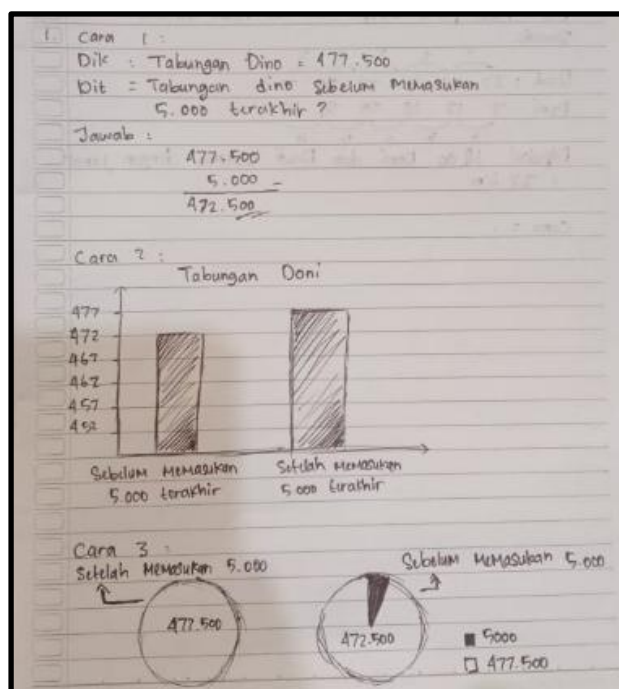 1. Cara 1 :
Dik : Tabungan Dino = 477.500
Dit = Tabungan dino Sebelum Memasukan
5.000 terakhir ?
Jawab :
477.500
5.000 -
472.500
Cara 2 :
Tabungan Doni
477
472
467
462
457
452
Sebelum Memasukan
5.000 terakhir
Setelah Memasukan
5.000 terakhir
Cara 3 :
Setelah Memasukan 5.000
Sebelum Memasukan 5.000
477.500
472.500
5000
477.500